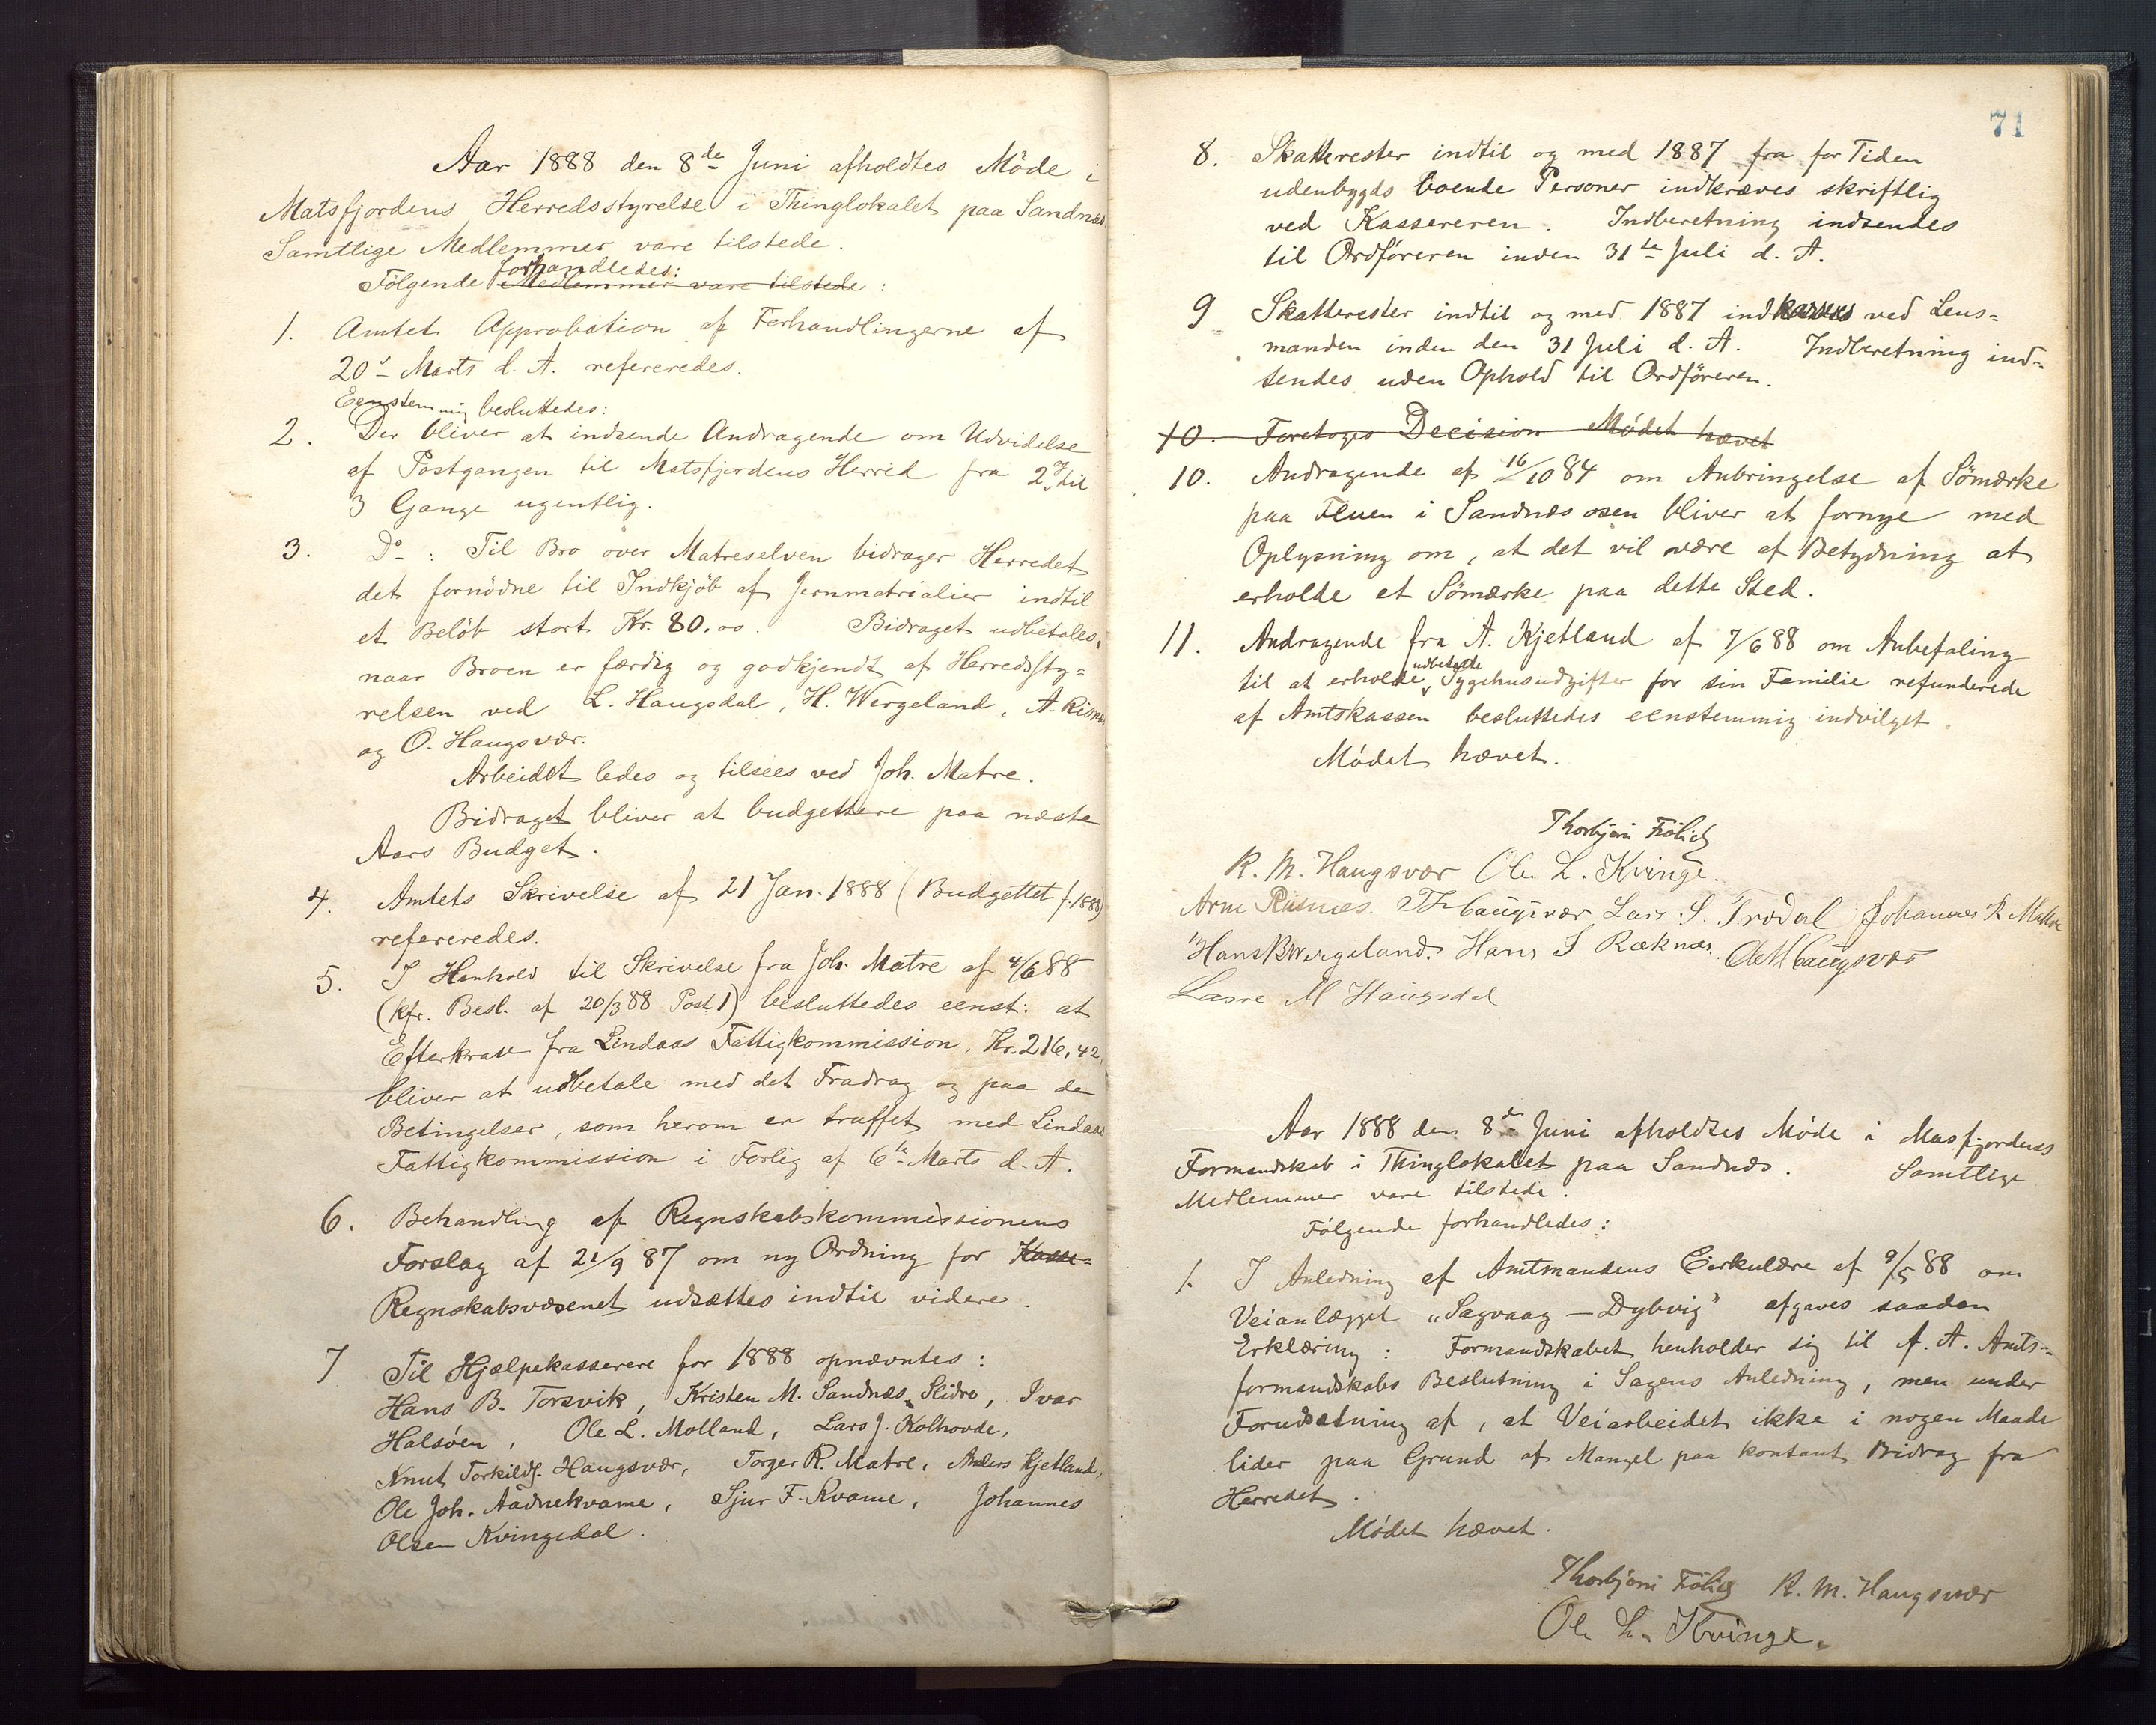 Aar 1888 den 8de Juni afholdtes Möde i
Matsfjordens Herredsstyrelse i Thinglokalet paa Sandnæs
Samtlige Medlemmer vare tilstede.
forhandledes:
Fölgende Medlemmer vare tilstede :
1. Amtets Approbation af Forhandlingerne af
20de Marts d. A. refereredes.
Eenstemmig besluttedes:
2. Der bliver at indsende Andragende om Udvidelse
af Postgangen til Matsfjordens Herred fra 2 til
3 Gange ugentlig.
3. Do : Til Bro over Matreselven bidrager Herredet
det fornödne til Indkjöb af Jernmatrialier indtil
et Belöb stort Kr. 80.00. Bidraget udbetales,
naar Broen er færdig og godkjendt af Herredssty=
relsen ved L. Haugsdal, H. Wergeland, A. Risnæs
og O. Haugsvær.
Arbeidet ledes og tilsees ved Joh. Matre.
Bidraget bliver at budgettere paa næste
Aars Budget.
4. Amtets Skrivelse af 21 Jan. 1888 (Budgettet f. 1888)
refereredes.
5. I Henhold til Skrivelse fra Joh. Matre af 4/6 88
(kfr. Besl. af 20/3 88 Post 1) besluttedes eenst: at
Efterkrav fra Lindaas Fattigkommission, Kr. 216,42,
bliver at udbetale med det Fradrag og paa de
Betingelser, som herom er truffet med Lindaas
Fattigkommission i Forlig af 6te Marts d. A.
6. Behandling af Regnskabskommissionens
Forslag af 21/9 87 om ny Ordning for Kasse=
Regnskabsvæsenet udsættes indtil videre.
7 Til Hjælpekasserere for 1888 opnævntes :
Hans B. Torsvik, Kristen M. Sandnæs, Slidre, Ivar
Halsöen, Ole L. Molland, Lars J. Kolhovde,
Knut Torkilds. Haugsvær, Torger R. Matre, Anders Kjetland,
Ole Joh. Aadnekvame, Sjur F. Kvame, Johannes
Olsen Kvingedal.
71
8. Skatterester indtil og med 1887 fra for Tiden
udenbygds boende Personer indkræves skriftlig
ved Kassereren. Indberetning indsendes
til Ordföreren inden 31te Juli d. A.
9 Skatterester indtil og med 1887 indkræves ved Lens=
manden inden den 31 Juli d. A. Indberetning ind=
sendes uden Ophold til Ordföreren.
10. Foretoges Decision Mödet hævet
10. Andragende af 16/10 84 om Anbringelse af Sömærke
paa Fluen i Sandnæsosen bliver at fornye med
Oplysning om, at det vil være af Betydning at
erholde et Sömærke paa dette Sted.
11. Andragende fra A. Kjetland af 7/6 88 om Anbefaling
udbetalte
til at erholde Sygehusudgifter for sin Familie refunderede
af Amtskassen besluttedes eenstemmig indvilget.
Mödet hævet.
Thorbjörn Frölich
R. M. Haugsvær Ole L. Kvinge.
Arne Risnes. Lars S. Trædal Johannes R. Matre
Hans B Wergeland. Hans S Ræknæs. O M Haugsvær
Lasse M Haugsdal
Aar 1888 den 8de Juni afholdtes Möde i Masfjordens
Formandskab i Thinglokalet paa Sandnæs. Samtlige
Medlemmer vare tilstede.
Fölgende forhandledes :
1. I Anledning af Amtmandens Cirkulære af 9/5 88 om
Veianlægget „Sagvaag — Dybvig" afgaves saadan
Erklæring : Formandskabet henholder sig til f. A. Amts=
formandskabs Beslutning i Sagens Anledning, men under
Forudsetning af, at Veiarbeidet ikke i nogen Maade
lider paa Grund af Mangel paa kontant Bidrag fra
Herredet.
Mödet hævet.
Thorbjörn Frölich R. M. Haugsvær
Ole L. Kvinge.